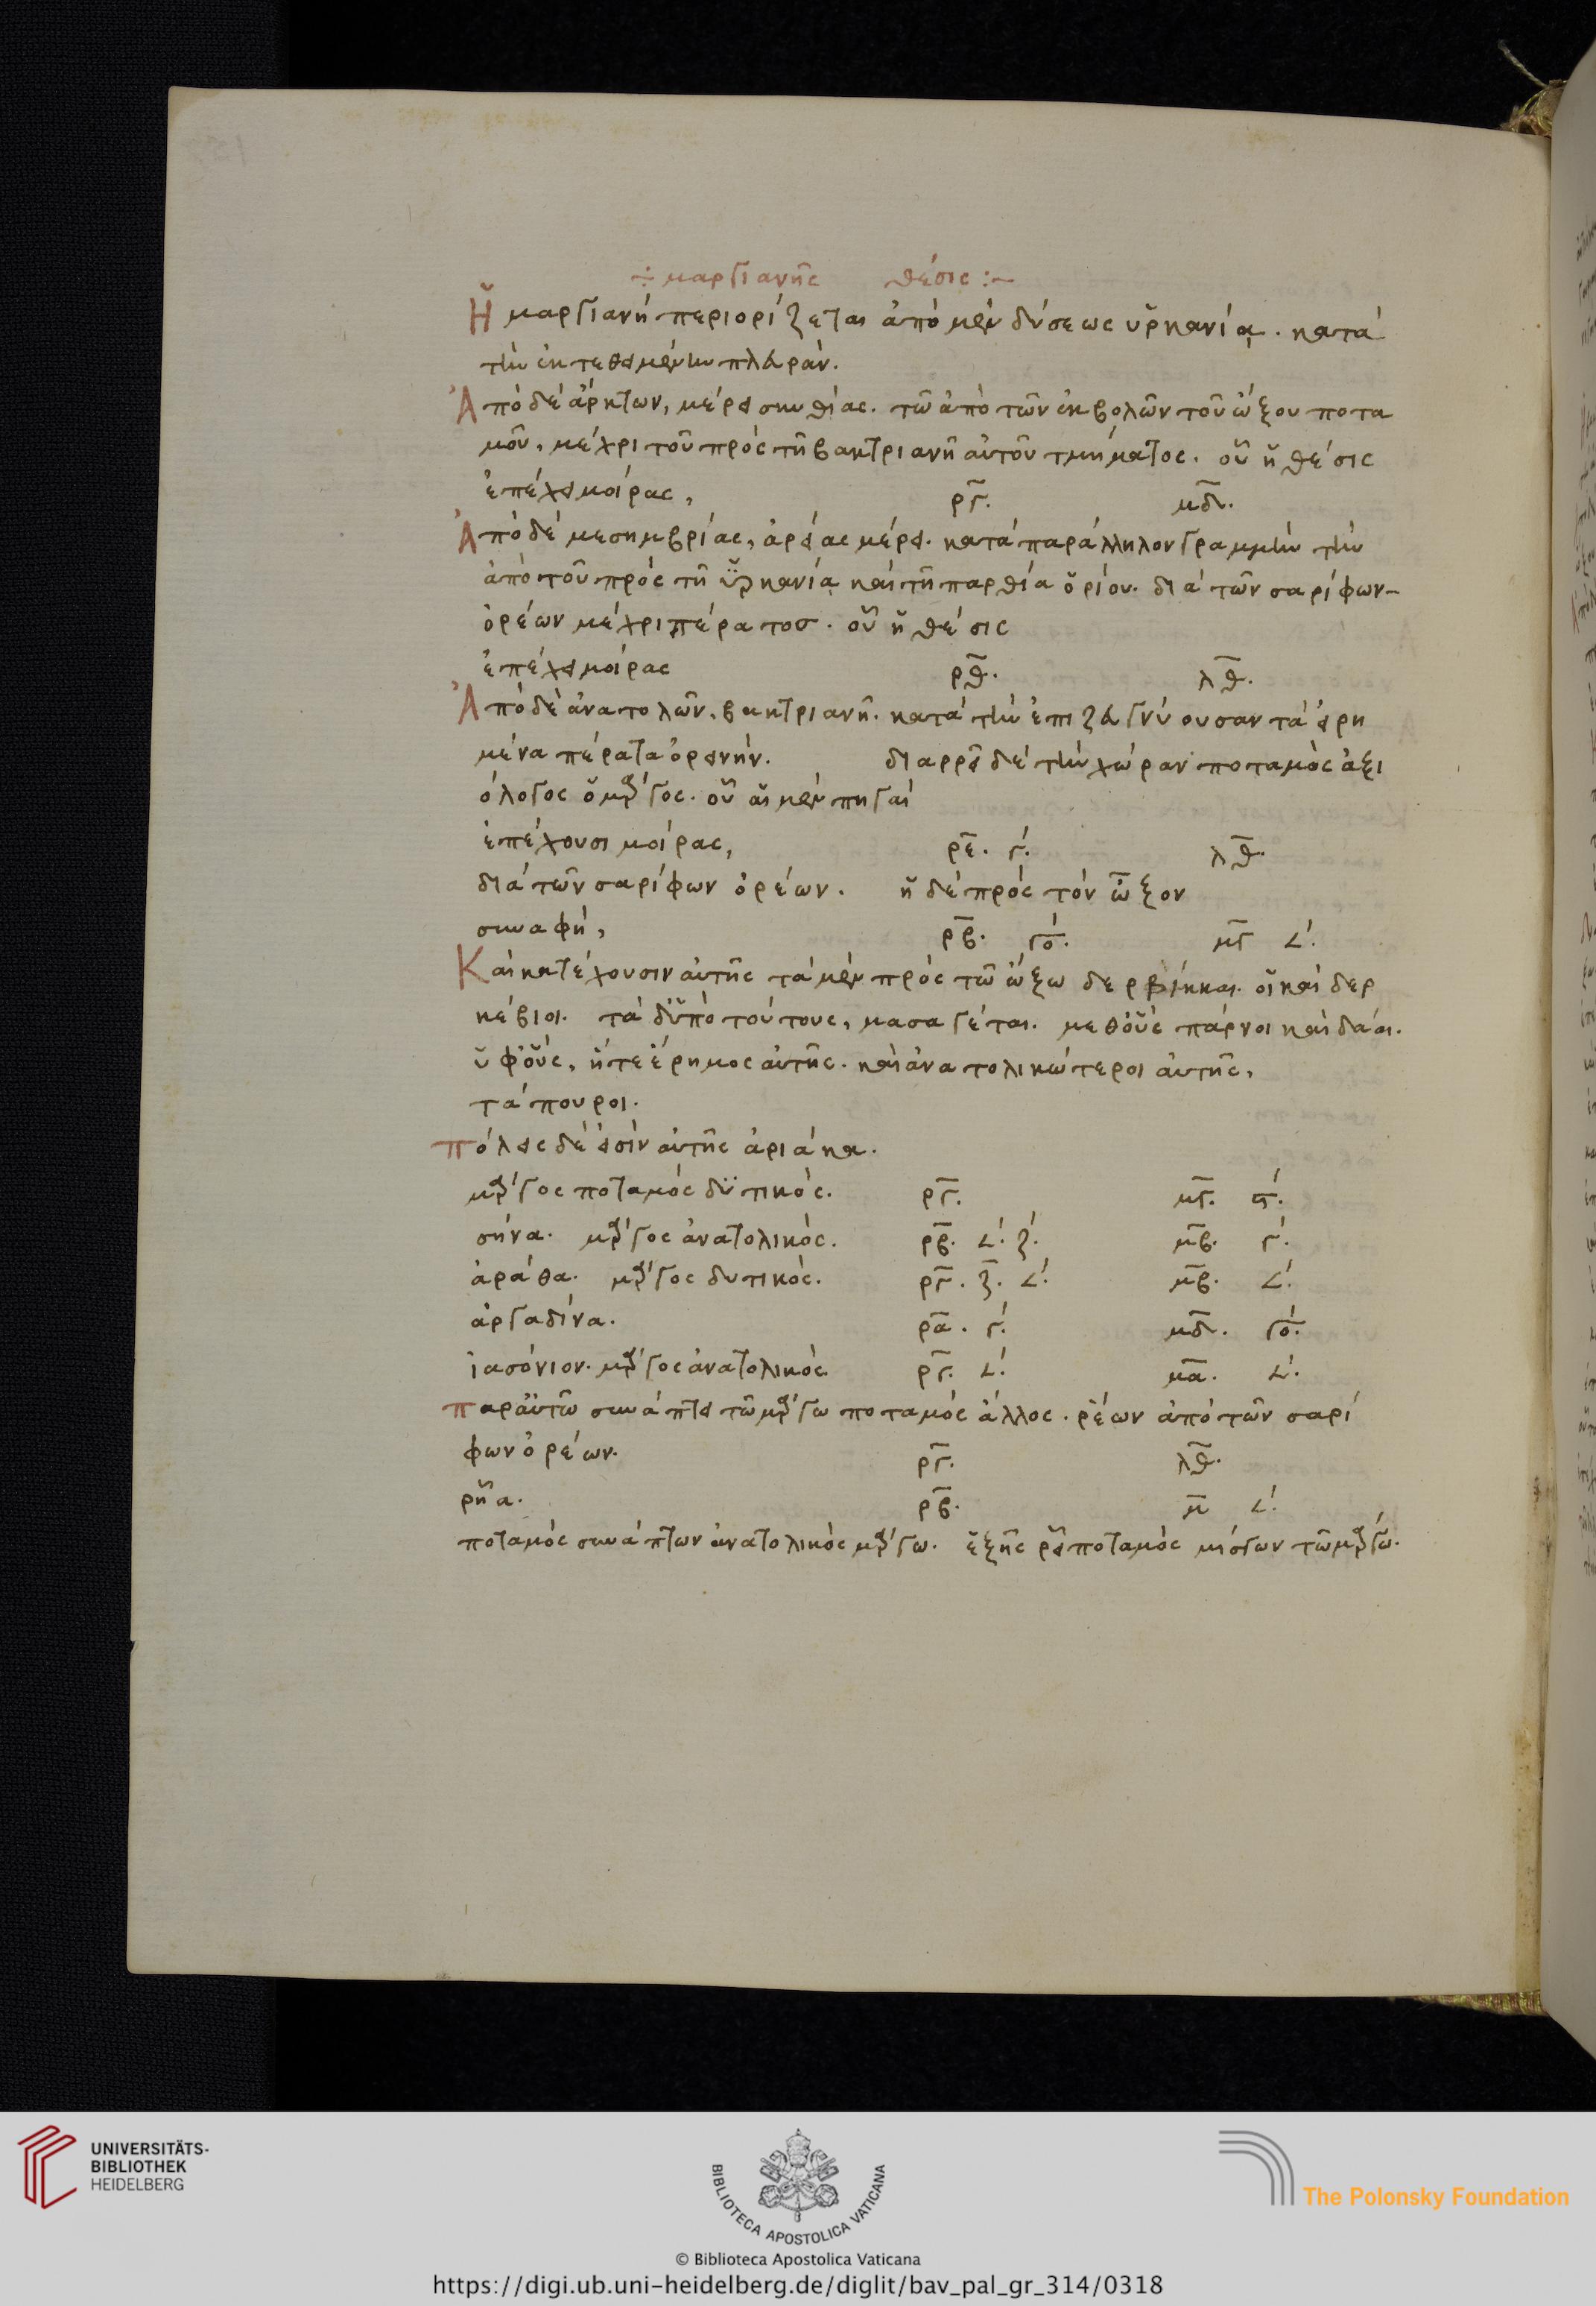 ÷ μαργιανῆς θέσις :~
Ἡ μαργιανὴ περιορίζεται ἀπὸ μὲν δύσεως ὑρκανία. κατὰ
τὴν ἐκτεθειμένην πλευράν.
Ἀπὸ δὲ ἄρκτων, μέρει σκυθίας. τῶ ἀπὸ τῶν ἐκβολῶν τοῦ ὤξου ποτα
μοῦ, μέχρι τοῦ πρὸς τῆ βακτριανῆ αὐτοῦ τμήματος. οὗ ἡ θέσις
ἐπέχει μοίρας, ργ. μδ.
Ἀπὸ δὲ μεσημβρίας, ἀρείας μέρει. κατὰ παράλληλον γραμμὴν τὴν
ἀπὸ τοῦ πρὸς τῆ ὑρκανία καὶ τῆ παρθία ὁρίου. διὰ τῶν σαρίφων-
ὀρέων μέχρι πέρατοσ. οὗ ἡ θέσις
ἐπέχει μοίρας ρθ. λθ.
Ἀπὸ δὲ ἀνατολῶν, βακτριανῆ. κατὰ τὴν ἐπιζευγνύουσαν τὰ εἰρη
μένα πέρατα ὀρεινήν. διαρρεῖ δὲ τὴν χώραν ποταμὸς ἀξι
όλογος ὁ μάργος. οὗ αἱ μὲν πηγαὶ
ἐπέχουσι μοίρας, ρε. γ. λθ.
διὰ τῶν σαρίφων ὀρέων. ἡ δὲ πρὸς τὸν ὦξον
συναφή, ρβ. γο. μγ ∠.
Καὶ κατέχουσιν αὐτῆς τὰ μὲν πρὸς τῶ ὤξω δερβίκκαι. οἳ καὶ δερ
κέβιοι. τὰ δ' ὑπὸ τούτους, μασαγέται. μεθ' οὓς πάρνοι καὶ δάαι.
ὑφ' οὓς, ἥ τε ἔρημος αὐτῆς. καὶ ἀνατολικώτεροι αὐτῆς,
τάπουροι.
πόλεις δέ εἰσὶν αὐτῆς ἀριάκα.
μάργος ποταμὸς δϋτικὸς. ργ. μγ. ϛ.
σήνα. μάργος ἀνατολικὸς. ρβ. ∠. ζ. μβ. γ.
ἀράθα. μάργος δυτικὸς. ργ. ζ. ∠. μβ. ∠.
ἀργαδίνα. ρα. γ. μδ. γο.
ἰασόνιον. μάργος ἀνατολικὸς ργ. ∠. μα. ∠.
παρ' αὐτῶ συνάπτει τῶ μάργω ποταμὸς ἄλλος. ῥέων ἀπὸ τῶν σαρί
φων ὀρέων. ργ. λθ.
ρἥα. ρβ. μ ∠.
ποταμὸς συνάπτων ἀνατολικὸς μάργω. ἑξῆς ῥεῖ ποταμὸς μίσγων τῶ μάργω.
UNIVERSITÄTS-
BIBLIOTHEK
HEIDELBERG
BIBLIOTECA APOSTOLICA VATICANA
The Polonsky Foundation
© Biblioteca Apostolica Vaticana
https://digi.ub.uni-heidelberg.de/diglit/bav_pal_gr_314/0318